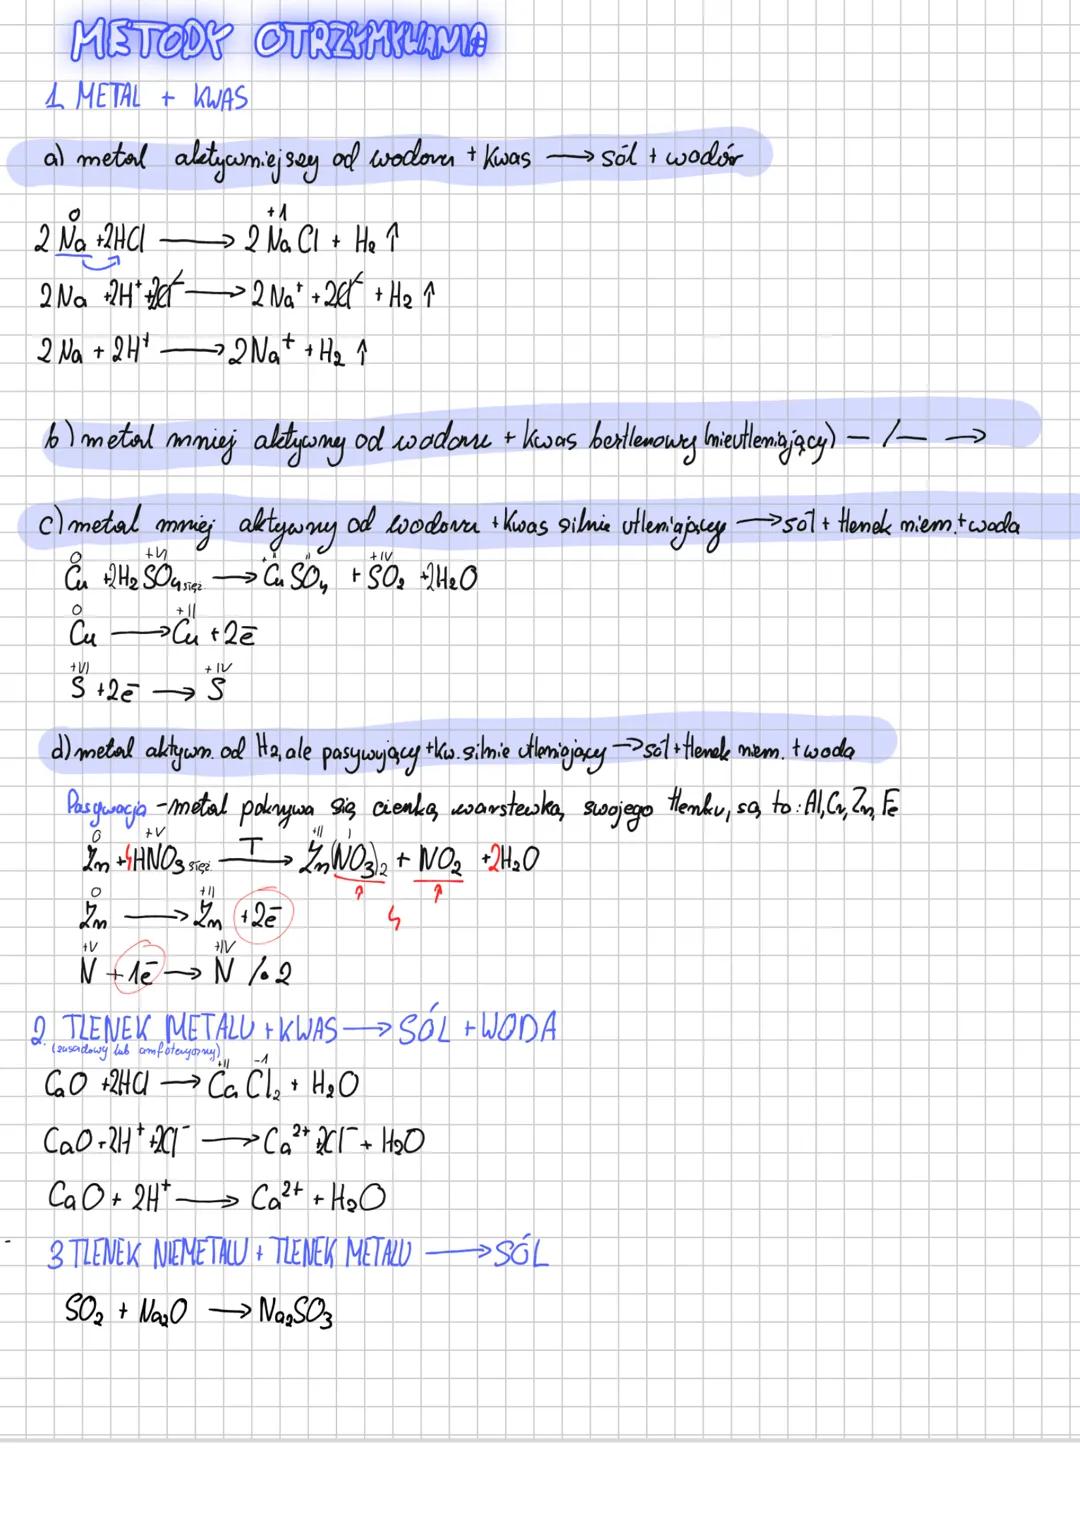 METODY OTRZYMYWANIA
1. METAL + KWAS
a) metal aktywniejszy od wodoru + kwas → sól + wodór
0 +1
2 Na + 2HCl → 2 NaCl + H₂ ↑
2 Na + 2H⁺ + 2Cl⁻ → 2 Na⁺ + 2Cl⁻ + H₂ ↑
2 Na + 2H⁺ → 2Na⁺ + H₂ ↑
b) metal mniej aktywny od wodoru + kwas beztlenowy (nieutleniający) — / — →
c) metal mniej aktywny od wodoru + kwas silnie utleniający → sól + tlenek niem. + woda
0 +VI +II +IV
Cu + 2H₂SO₄ stęż. → CuSO₄ + SO₂ + 2H₂O
0 +II
Cu → Cu + 2e̅
+VI +IV
S + 2e̅ → S
d) metal aktywn. od H₂, ale pasywujący + kw. silnie utleniający → sól + tlenek niem. + woda
Pasywacja - metal pokrywa się cienką warstewką swojego tlenku, są to: Al, Cr, Zn, Fe
0 +V T +II I
Zn + 4HNO₃ stęż. → Zn(NO₃)₂ + NO₂ + 2H₂O
0 +II
Zn → Zn + 2e̅ 4
+V +IV
N + 1e̅ → N /· 2
2. TLENEK METALU + KWAS → SÓL + WODA
(zasadowy lub amfoteryczny)
+II -1
CaO + 2HCl → CaCl₂ + H₂O
CaO + 2H⁺ + 2Cl⁻ → Ca²⁺ 2Cl⁻ + H₂O
CaO + 2H⁺ → Ca²⁺ + H₂O
3 TLENEK NIEMETALU + TLENEK METALU → SÓL
SO₂ + Na₂O → Na₂SO₃